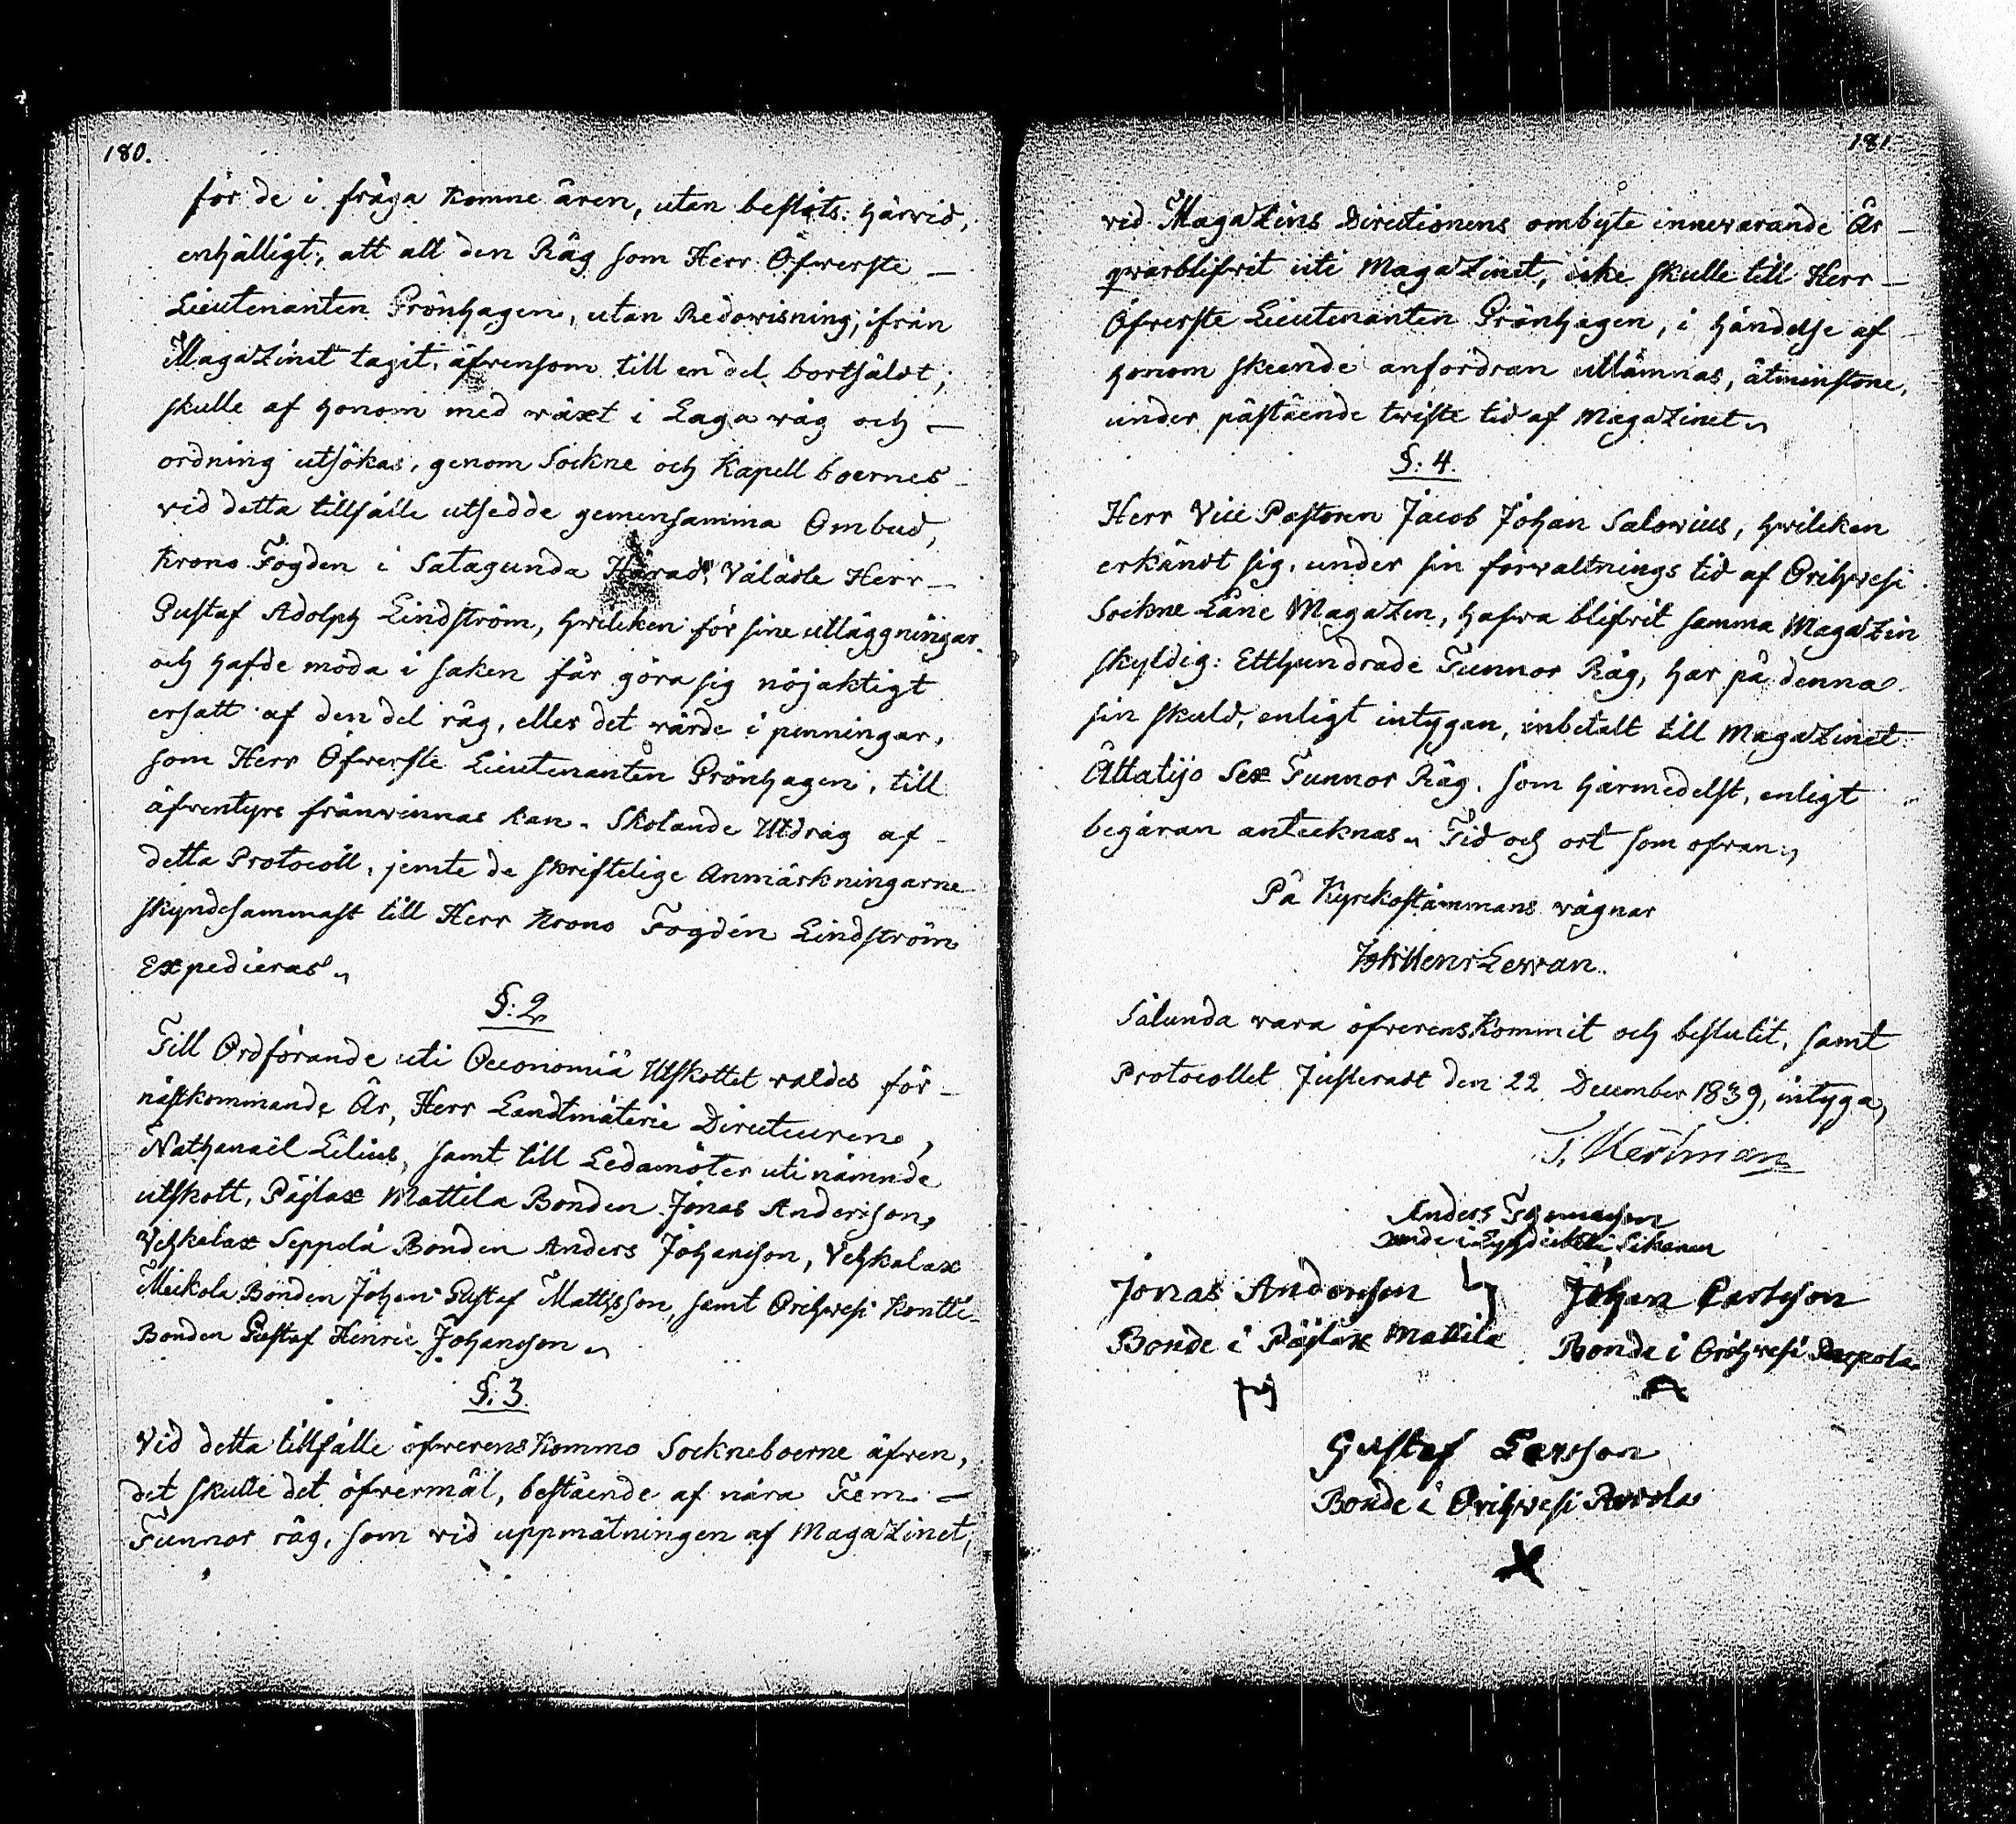 180.
för de i fråga komne åren, utan beslöts härvid,
enhälligt, att all den Råg som Herr Öfwerste
Lieutenanten Grönhagen, utan Redowisning, ifrån
Magazinet tagit, äfwensom till en del bortsåldt;
skulle af honom med wäxt i Laga wäg och
ordning utsökas, genom Sockne och Kapell boernes
vid detta tillfälle utsedde gemensamma Ombud,
Krono Fogden i Satagunda Härad, Välädle Herr
Gustaf Adolph Lindström, hwilcken för sine utläggningar
och hafde möda i saken får göra sig nöjaktigt
ersatt af den del råg, eller det wärde i penningar,
som Herr Öfwerste Lieutenanten Grönhagen, till
äfwentyrs frånwinnas kan. Skolande Utdrag af
detta Protocoll, jemte de skriftelige Anmärkningarne
skyndesammast till Herr Krono Fogden Lindström
Expedieras.
§: 2
Till Ordförande uti Oeconomiä Utskottet valdes för
nästkommande År, Herr Landtmäterie Directeuren,
Nathanaël Lilius, samt till Ledamöter uti nämnde
utskott, Päjlax Mattila Bonden Jonas Andersson,
Vehkalax Seppelä Bonden Anders Johansson, Vehkalax
Meikola Bonden Johan Gustaf Mattsson, samt Orihwesi Kontti
Bonden Gustaf Henric Johansson.
§: 3
Vid detta tillfälle öfwerenskommo Sockneboerne äfwen,
det skulle det öfwermål, bestående af nära Fem
Tunnor råg, som vid uppmätningen af Magazinet,
181
vid Magazins Directionens ombyte innewarande År
qwarblifwit uti Magazinet, icke skulle till Herr
Öfwerste Lieutenanten Grönhagen, i händelse af
honom skeende anfordran utlämnas, åtminstone,
under påstående twiste tid af Magazinet.
§: 4.
Herr Vice Pastoren Jacob Johan Salovius, hwilcken
erkändt sig, under sin förwaltnings tid af Orihwesi
Sockne Låne Magazin, hafwa blifwit samma Magazin
skyldig: Etthundrade Tunnor Råg, har på denna
sin skuld, enligt intygan, inbetalt till Magazinet
Åttatijo Sex Tunnor Råg, som härmedelst, enligt
begäran antecknas. Tid och ort som ofwan.
På Kyrckostämmans wägnar
Henr Lewan.
Sålunda vara öfwerenskommit och beslutit, samt
Protocollet Justeradt den 22 December 1839, intyga,
Anders
i
Jonas Andersson
Johan Carlsson
Bonde i Päjlax Mattila
Bonde i Orihwesi
Gustaf Larsson
Bonde i Orihwesi